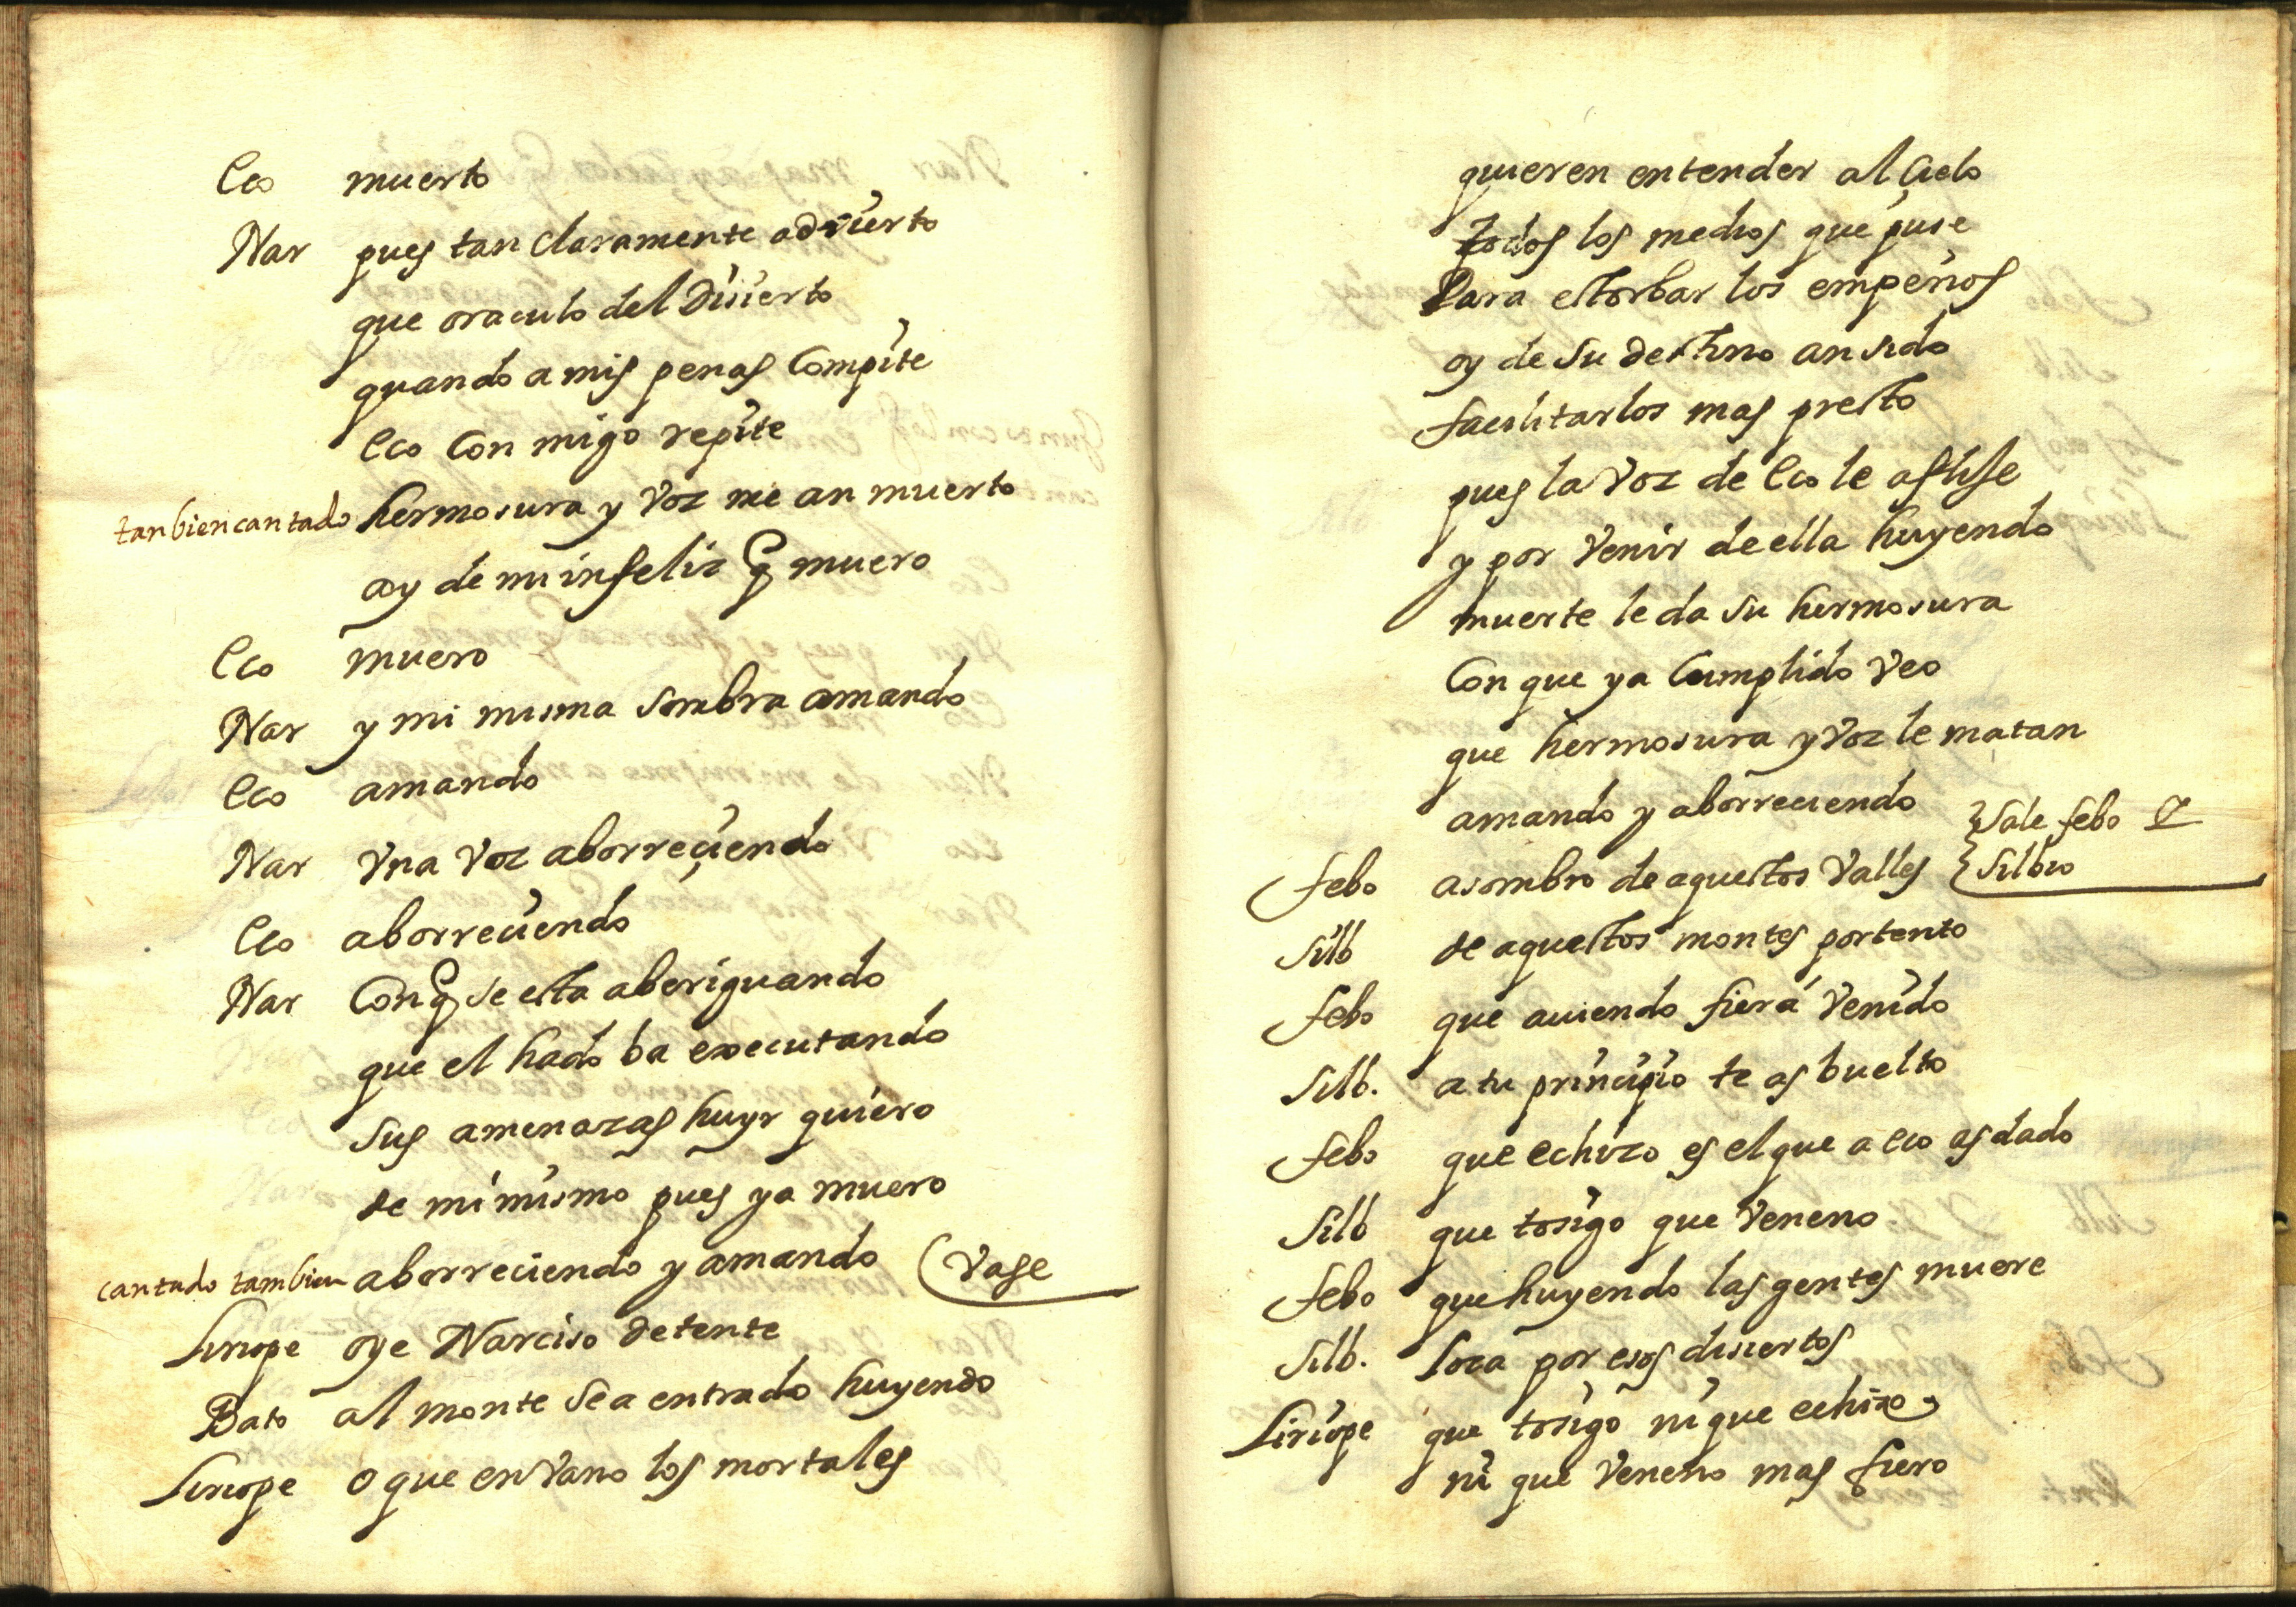 Eco muerto
Nar pues tan claramente advierto
que oraculo del disierto
quando a mis penas compite
Eco con migo repite
tanbien cantado hermosura y voz me an muerto
ay de mi infeliz q muero
Eco muero
Nar y mi misma sombra amando
Eco amando
Nar vna voz aborreciendo
Eco aborreciendo
Nar Con q se esta aberiguando
que el hado ba executando
sus amenazas huyr quiero
de mi mismo pues ya muero
cantado tambien aborreciendo y amando (vase
Liriope oye Narciso detente
Bato al monte se a entrado huyendo
Liriope o que en vano los mortales
quieren entender al cielo
todos los medios que puse
Para estorbar los empeños
oy de su destino an sido
facilitarlos mas presto
pues la voz de Eco le aflife
y por venir de ella huyendo
muerte le da su hermosura
Con que ya Cumplido veo
que hermosura y voz le matan
amando y aborreciendo } Sale febo y
febo asombro de aquestos valles { Silbio
Silb de aquestos montes portento
febo que auiendo fiera venido
Silb. a tu principio te as buelto
febo que echizo es el que a eco as dado
Silb que tosigo que veneno
febo que huyendo las gentes muere
Silb. loca por esos disiertos
Liriope que tosigo ni que echizo
ni que veneno mas fiero